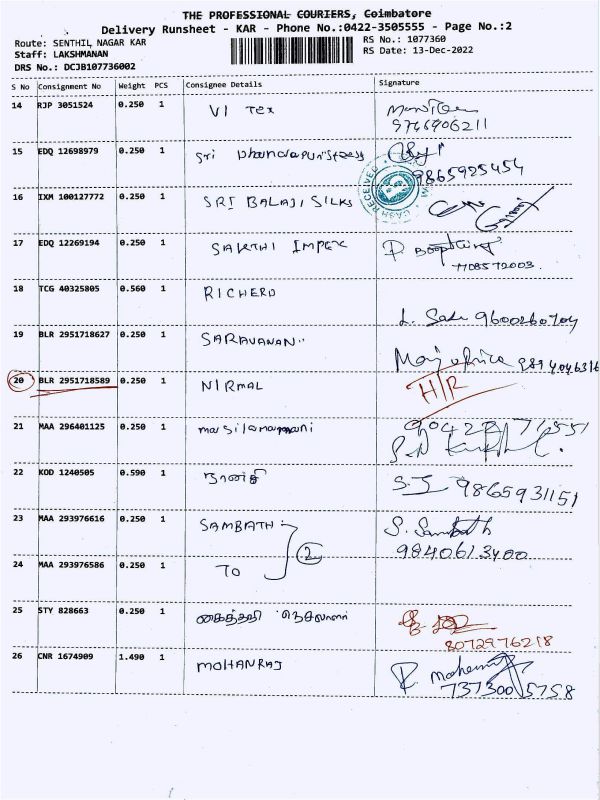 THE PROFESSIONAL COURIERS, Coimbatore
Delivery Runsheet - KAR - Phone No.:0422-3505555 - Page No.:2
Route: SENTHIL NAGAR KAR
RS No.: 1077360
Staff: LAKSHMANAN
RS Date: 13-Dec-2022
DRS No.: DCJB107736002
S No Consignment No Weight PCS Consignee Details Signature
14 RJP 3051524 0.250 1 VI Tex
9766906211
15 EDQ 12698979 0.250 1 Sri
9865925454
CASH RECEIVED
16 IXM 100127772 0.250 1 SRI BALAJI SILKS
17 EDQ 12269194 0.250 1 SAKTHI IMPEX
7708572003.
18 TCG 40325805 0.560 1 RICHERD
9600260704
19 BLR 2951718627 0.250 1 SARAVANAN
20 BLR 2951718589 0.250 1 NIRMAL H/R
21 MAA 296401125 0.250 1 masilamani
22 KOD 1240505 0.590 1 S.J 9865931151
23 MAA 293976616 0.250 1 SAMBATH S. Sambath
2 9840613400
24 MAA 293976586 0.250 1 TO
25 STY 828663 0.250 1 கைத்தறி நெசவாளர்
8072976218
26 CNR 1674909 1.490 1 MOHANRAJ
737300 5758